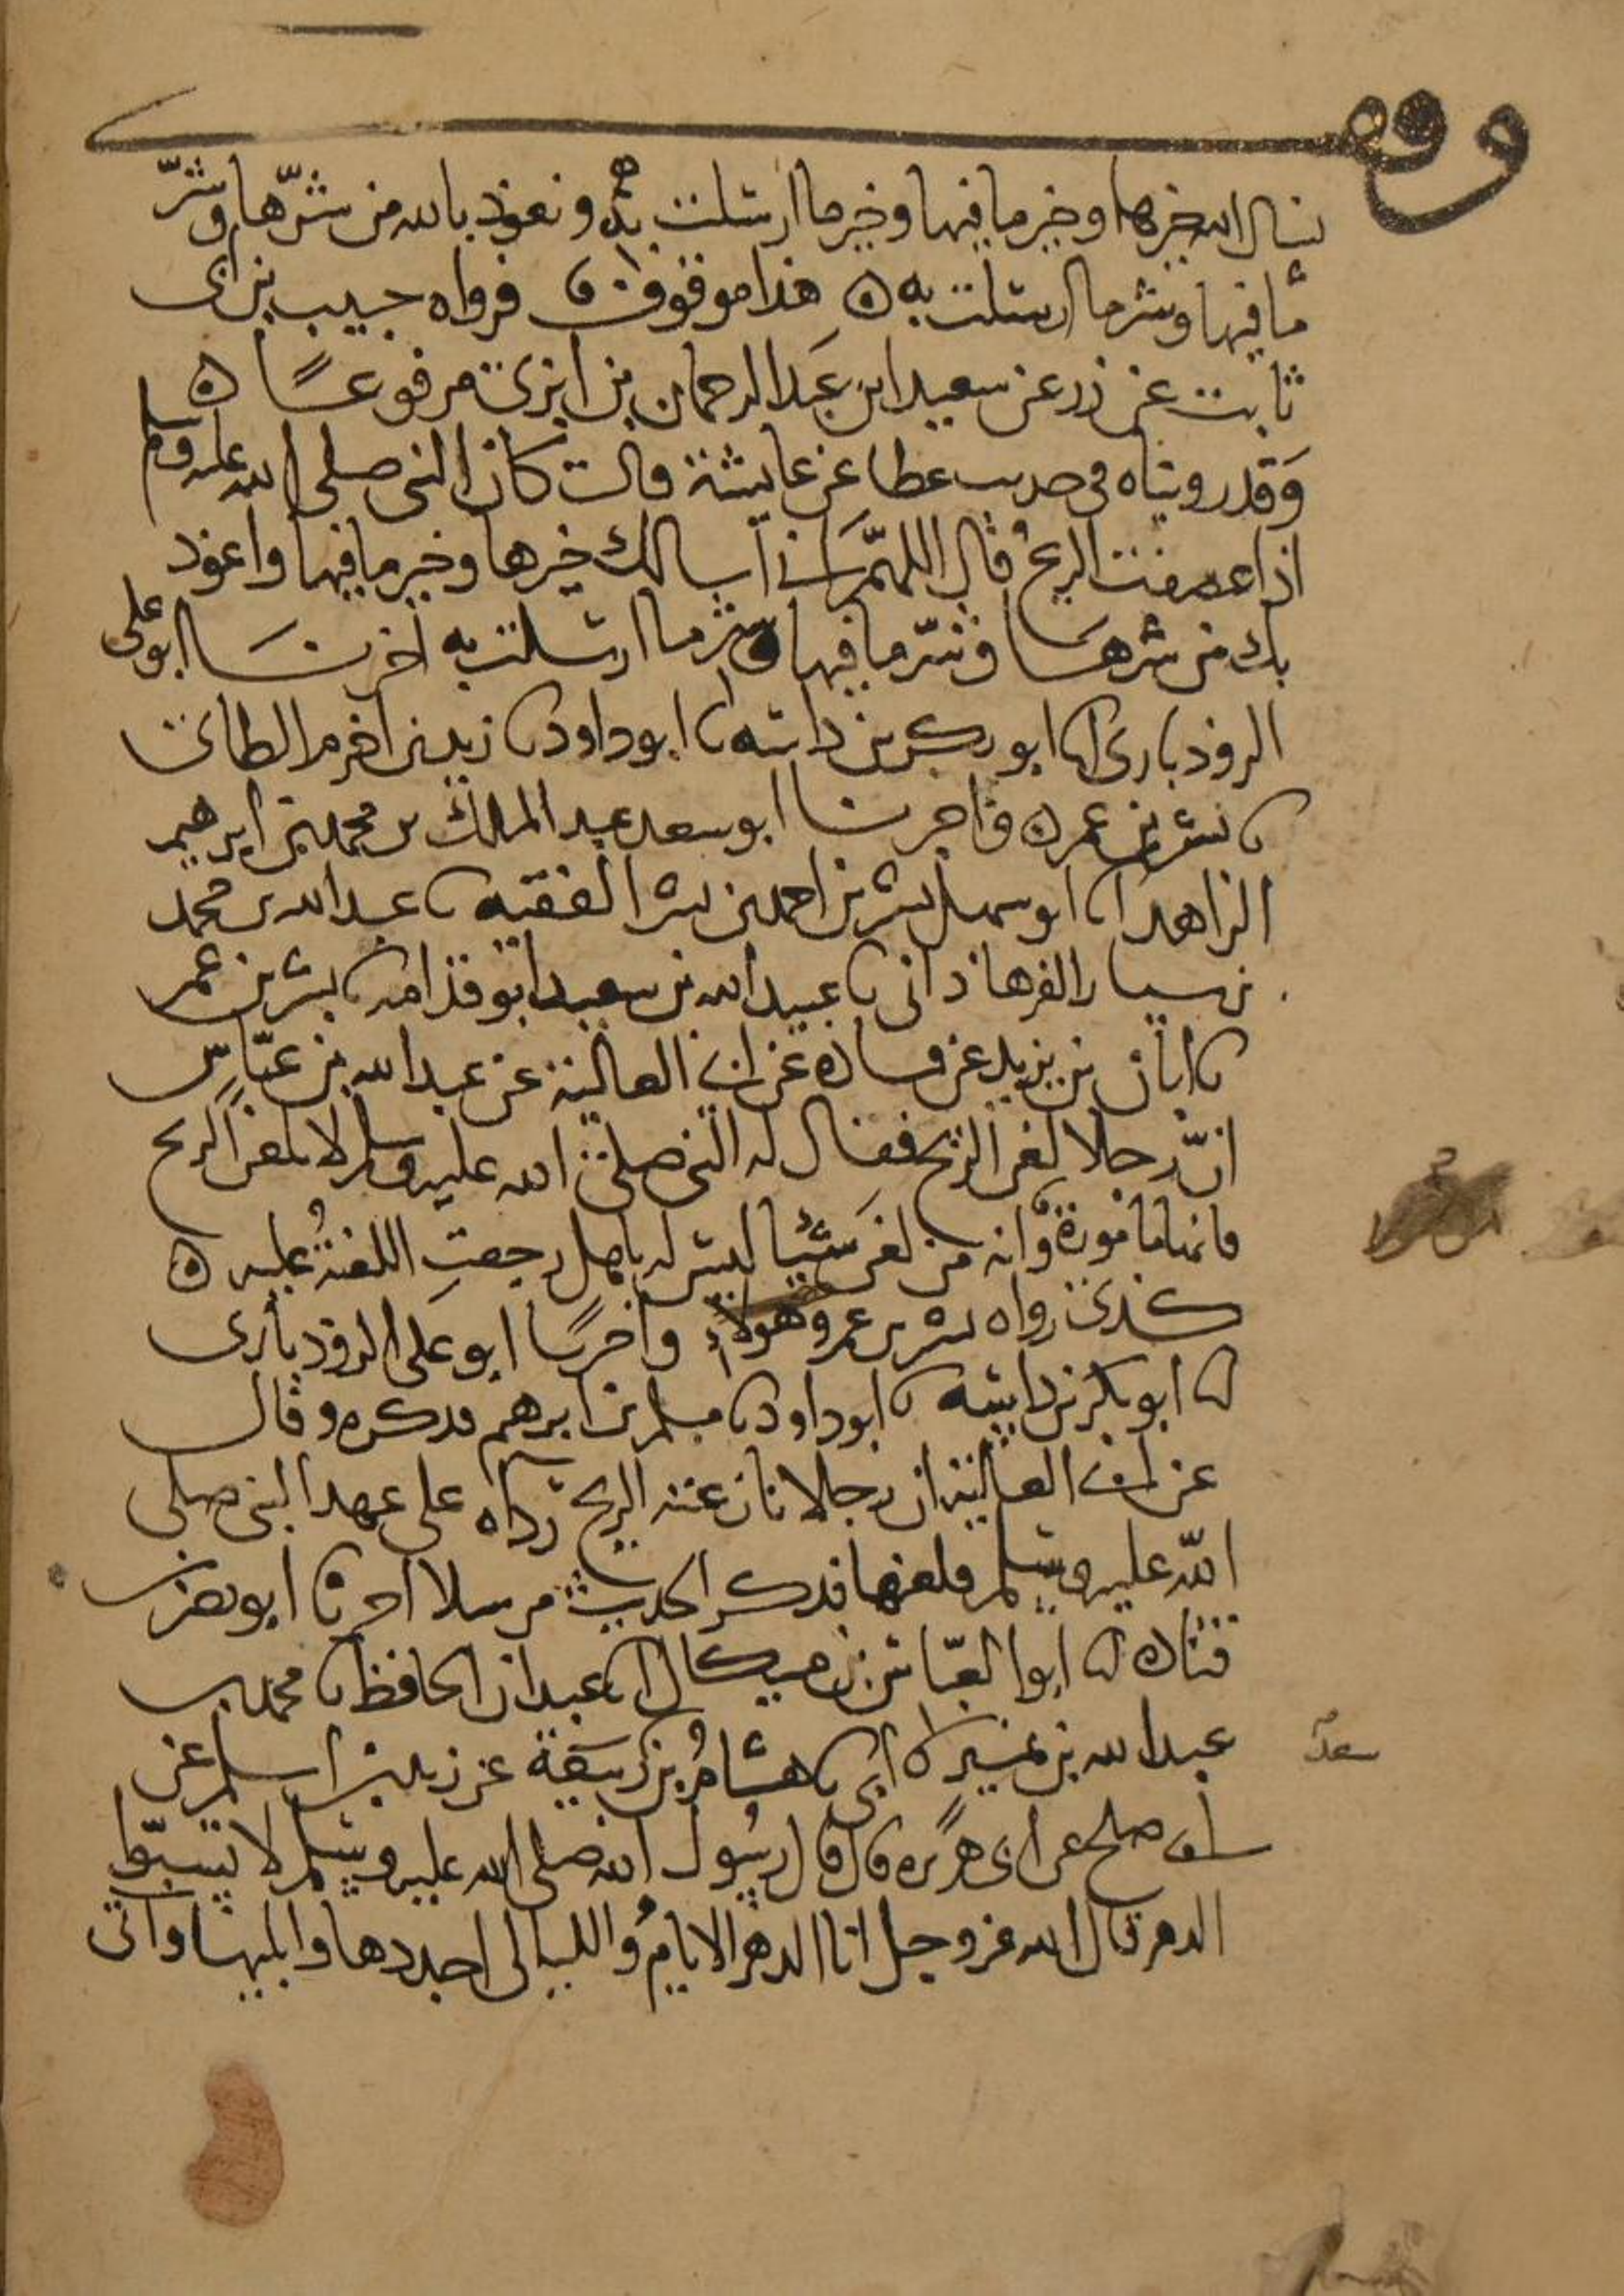 وقف
نسال الله خيرها وخير ما فيها وخير ما ارسلت به ونعوذ بالله من شرّها وشرّ
ما فيها وشر ما ارسلت به ه هذا موقوف ورواه حبيب بن ابى
ثابت عن ذر عن سعيد ابن عبد الرحمان بن ابزى مرفوعًا ه
وَقد رويناه فى حديث عطا عن عايشة قالت كان النبى صلى الله عليه وسلم
اذا عصفت الريحُ قال اللهمّ انى اسالك خيرها وخير ما فيها واعوذ
بك من شرهَا وشرّ ما فيها وشر ما ارسلت به اخبرنَا ابو على
الروذبارى انا ابو بكر بن داسه نا ابو داود نا زيد بن اخزم الطائى
نا بشر بن عمر ه واخبرنا ابو سعد عبد الملك بن محمد بن ابرهيم
الزاهد انا ابو سهل بشر بن احمد بن بشر الفقيه نا عبد الله بن محمد
بن سيار الفرهاذانى نا عبيد الله بن سعيد ابو قدامه نا بشر بن عمر
نا ابان بن يزيد عن قتاده عن ابى العالية عن عبد الله بن عبّاس
انّ رجلا لعن الريح فقال له النبى صلى الله عليه وسلم لا تلعن الريح
فانها مامورة وانه من لعن شيئا ليس له باهل رجعتِ اللعنةُ عليه ه
كذى رواه بشر بن عمر وهولاء واخبرنا ابو على الروذبارى
انا ابو بكر بن داسه نا ابو داود نا مسلم بن ابرهيم فذكره وقال
عن ابى العالية ان رجلا نازعته الريح رداه على عهد النبى صلى
اللّه عليه وسلم فلعنها فذكر الحديث مرسلا اخبرنا ابو نصر بن
قتادة انا ابو العبّاس بن ميكال انا عبدان الحافظ نا محمد بن
عبد الله بن نمير نا ابى نا هشامُ بن سَعد عن زيد بن اسلم عن
سعد
ابى صلح عن ابى هريره قال قال رسُول الله صلى الله عليه وسلم لا تسبّوا
الدهر قال الله عز وجل انا الدهر الايامُ والليالى اجددها وابليها واتى